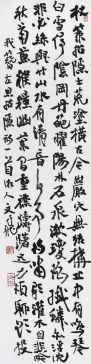 杖策招隱士荒塗橫古今巖穴無結構丘中有鳴琴
白雲停陰岡丹葩曜陽林石泉漱瓊瑤纖鱗或浮沉
非必絲與竹山水有清音何事待嘯歌灌木自悲吟
秋菊兼餱糧幽蘭間重襟躊躇足力煩聊欲投
吾簪 左思招隱詩一首